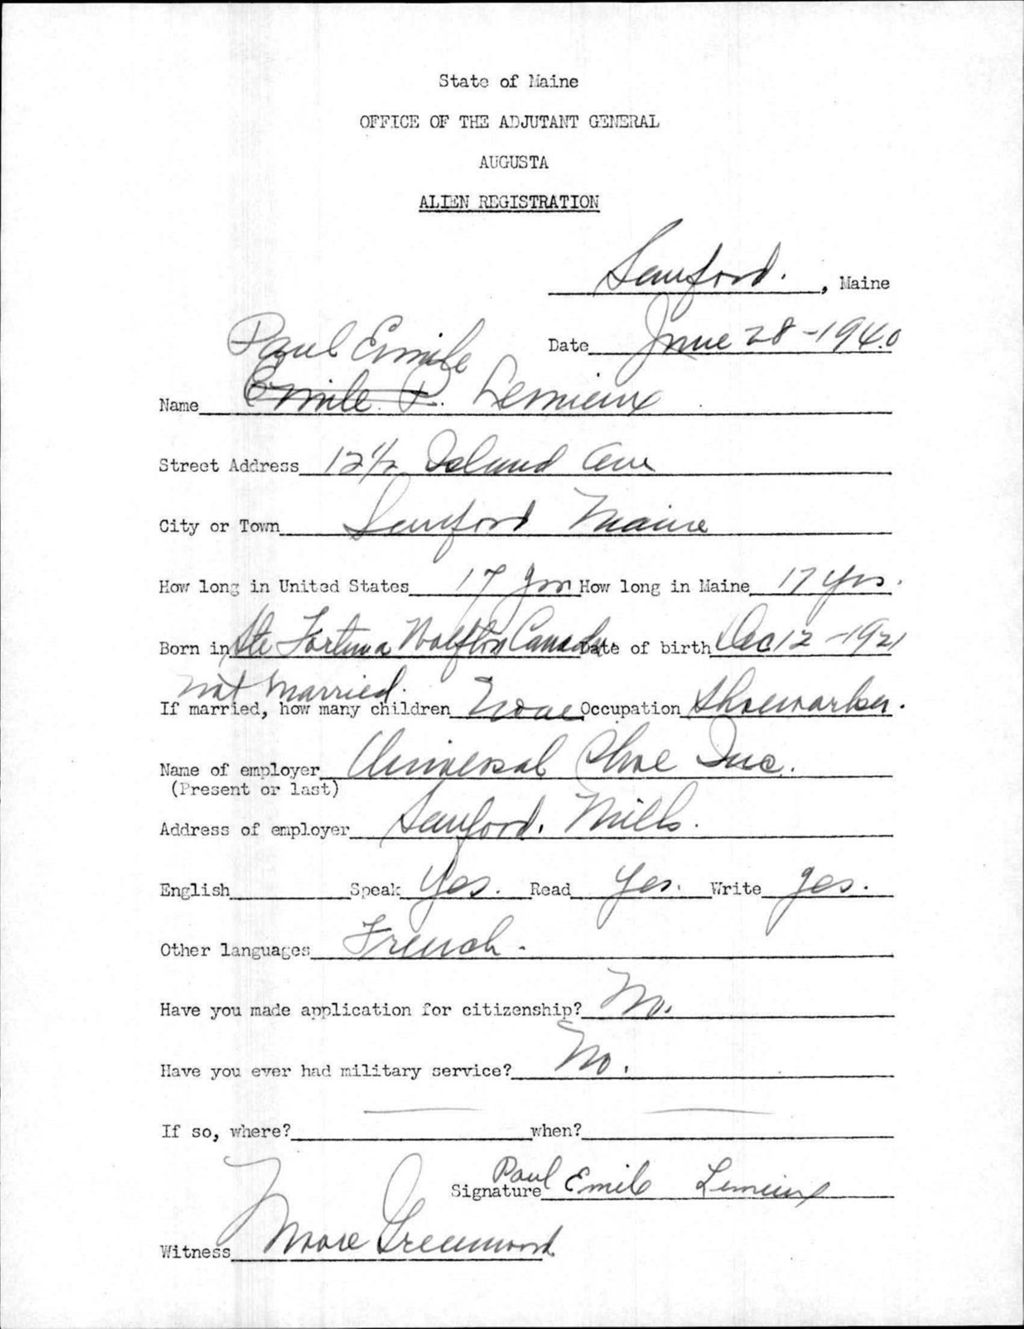 State of Maine
OFFICE OF THE ADJUTANT GENERAL
AUGUSTA
ALIEN REGISTRATION
Sanford. , Maine
Date June 28-1940
Paul Emile
Name Emile P. Lemieux
Street Address 12½ Island Ave
City or Town Sanford Maine
How long in United States 17 yrs How long in Maine 17 yrs.
Born in Ste Fortuna Canada Date of birth Dec 12-1921
Not Married.
If married, how many children None Occupation Shoeworker.
Name of employer Universal Shoe Inc.
(Present or last)
Address of employer Sanford. Mills.
English Speak Yes. Read Yes. Write yes.
Other languages French-
Have you made application for citizenship? No.
Have you ever had military service? No.
If so, where? when?
Paul
Signature Emile Lemieux
Witness Moore Greenwood